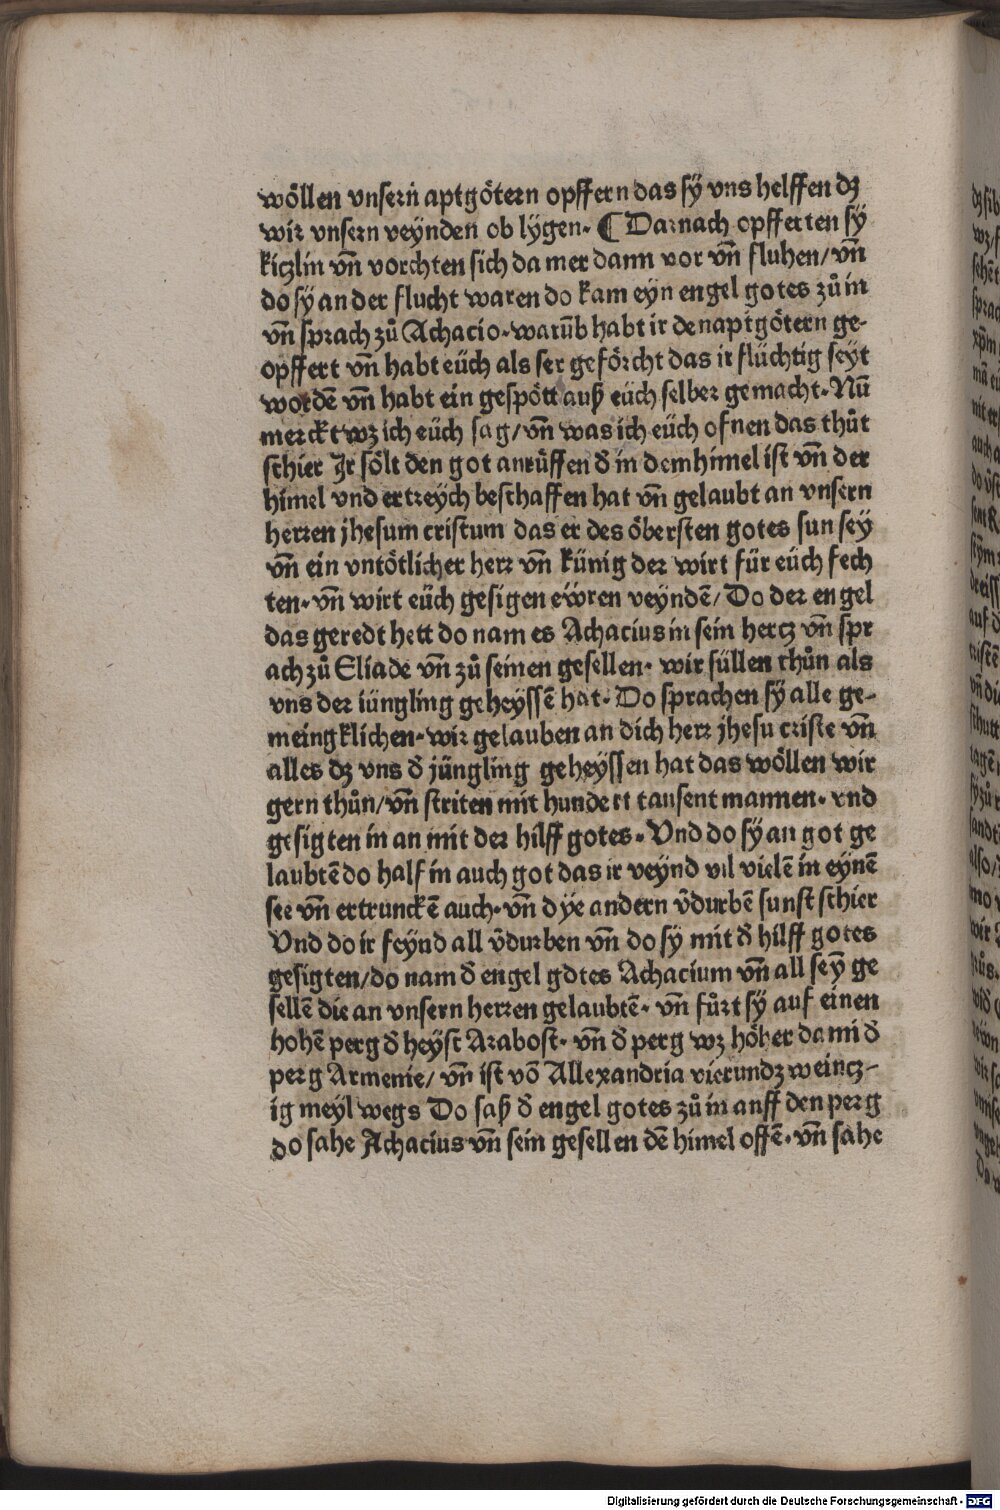 wöllen vnsern aptgötern opffern das sÿ vns helffen dz
wir vnsern veÿnden ob lygen. ¶ Darnach opfferten sÿ
kiczlin vn̄ vorchten sich da mer dann vor vn̄ fluhen/ vn̄
do sÿ an der flucht waren do kam eyn engel gotes zů in
vn̄ sprach zů Achacio. warūb habt ir den aptgötern ge-
opffert vn̄ habt eüch als ser geförcht das ir flüchtig seyt
wordē vn̄ habt ein gespött auß eüch selber gemacht. Nū
merckt wz ich eüch sag/ vn̄ was ich eüch ofnen das thůt
schier Jr sölt den got anrüffen d̄ in dem himel ist vn̄ der
himel vnd ertreÿch beschaffen hat vn̄ gelaubt an vnsern
herren jhesum cristum das er des öbersten gotes sun seÿ
vn̄ ein vntötlicher herr vn̄ künig der wirt für eüch fech
ten. vn̄ wirt eüch gesigen ewren veyndē/ Do der engel
das geredt hett do nam es Achacius in sein hercz vn̄ spr
ach zů Eliade vn̄ zů seinen gesellen. wir süllen thůn als
vns der iüngling geheÿssē hat. Do sprachen sÿ alle ge-
meingklichen. wir gelauben an dich herr jhesu criste vn̄
alles dz vns d̄ jüngling geheÿssen hat das wöllen wir
gern thůn/ vn̄ striten mit hundert tausent mannen. vnd
gesigten in an mit der hilff gotes. Vnd do sÿ an got ge
laubtē do half in auch got das ir veÿnd vil vielē in eynē
see vn̄ ertrunckē auch. vn̄ dÿe andern v̄durbē sunst schier
Vnd do ir feÿnd all v̄durben vn̄ do sÿ mit d̄ hilff gotes
gesigten/ do nam d̄ engel gotes Achacium vn̄ all sey̅ ge
sellē die an vnsern herren gelaubtē. vn̄ fůrt sÿ auf einen
hohē perg d̄ heÿst Arabost. vn̄ d̄ perg wz höher da mi d̄
perg Armenie/ vn̄ ist vō Allexandria vierundzweincz-
ig meyl wegs Do saß d̄ engel gotes zů in auff den perg
do sahe Achacius vn̄ sein gesellen dē himel offē. vn̄ sahe
Digitalisierung gefördert durch die Deutsche Forschungsgemeinschaft - DFG